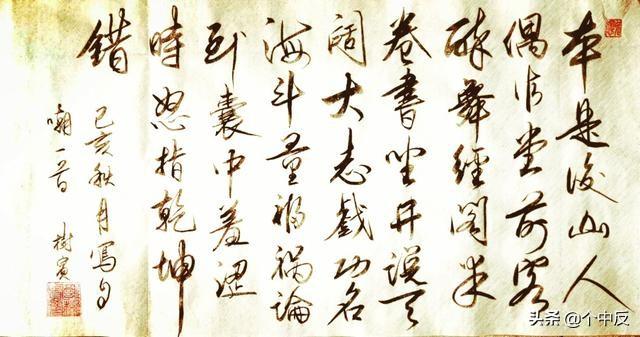 本是後山人
偶作堂前客
醉舞經閣半
卷書坐井說天
闊大志戲功名
海斗量福禍論
到囊中羞澀
時怒指乾坤
錯
己亥秋月寫自
嘲一首 樹賓
头条 @个中反